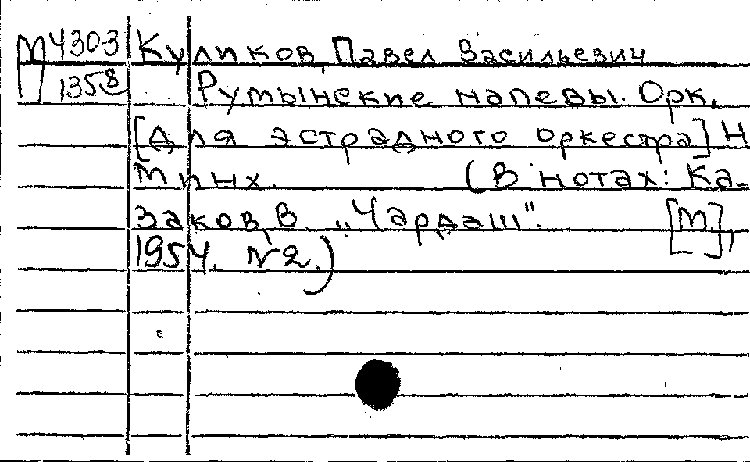 М 430-3 Куликов, Павел Васильевич
1358 Румынские напевы. Орк.
[для эстрадного оркестра] Н
(В нотах: Ка-
заков, В. "Чардаш". [М],
1954. №2.)